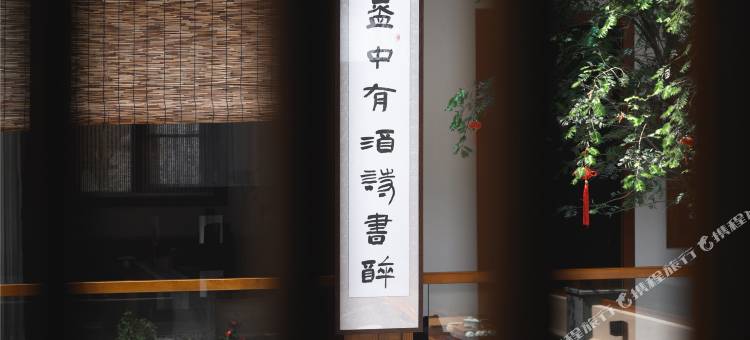 盃中有酒詩書醉
携程旅行
携程旅行